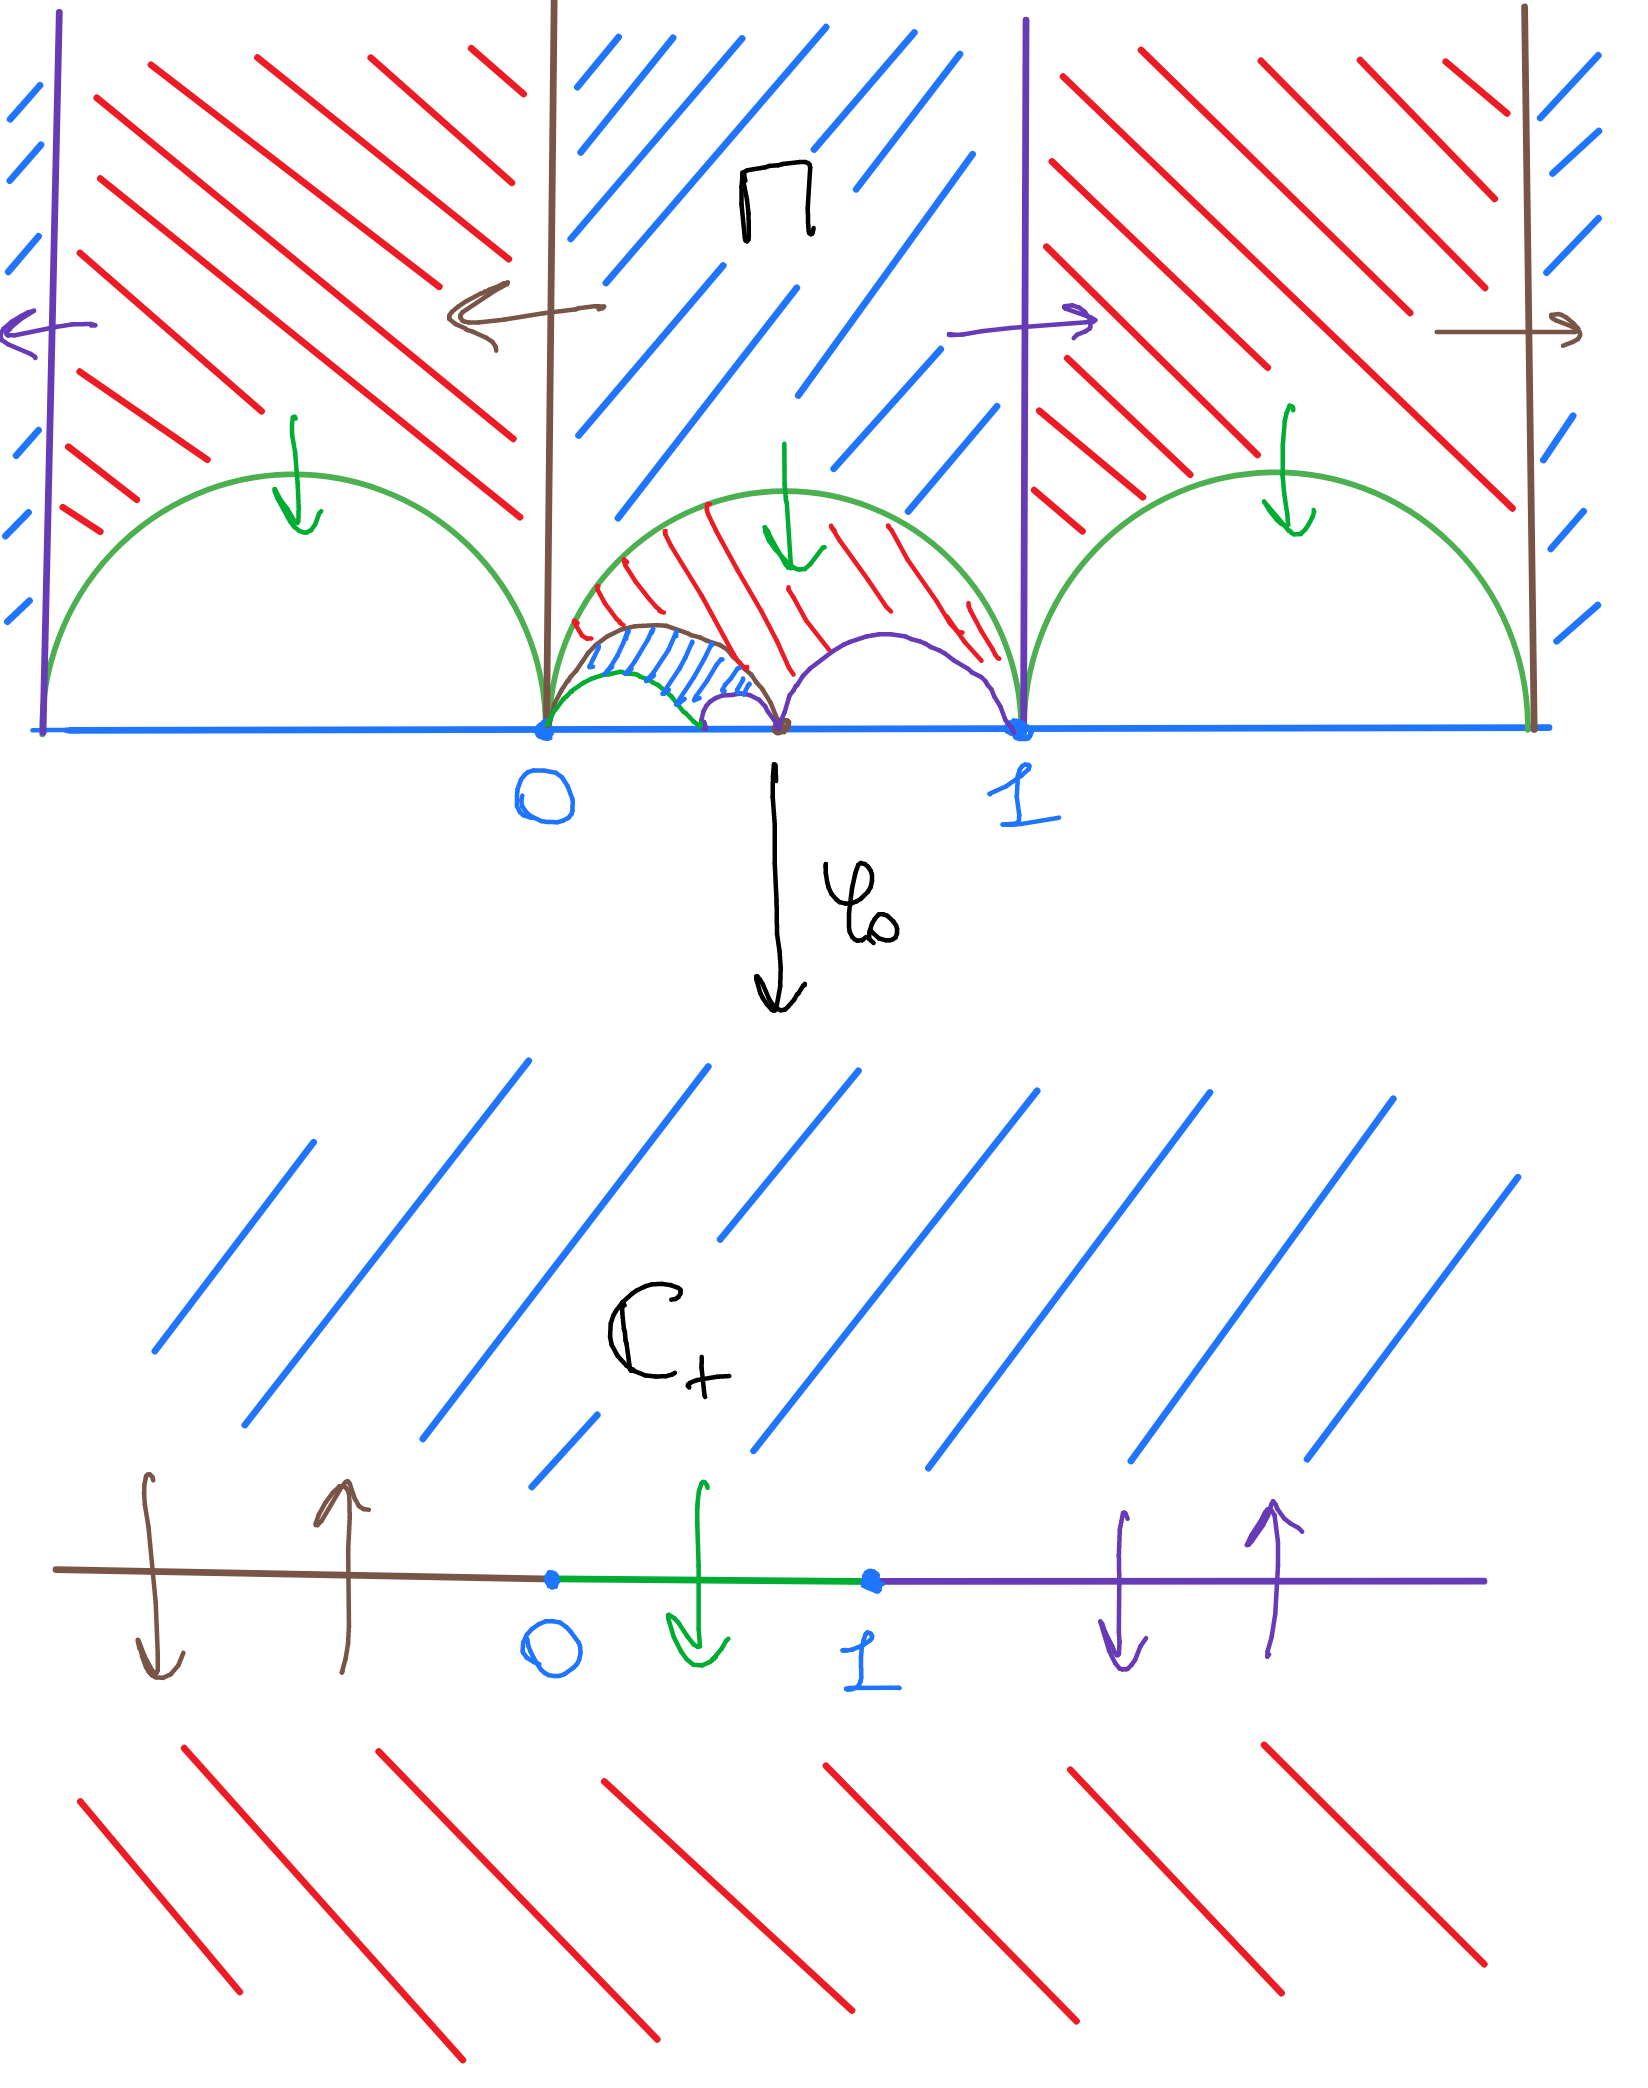 Π
0 1
φ₀
ℂ₊
0 1